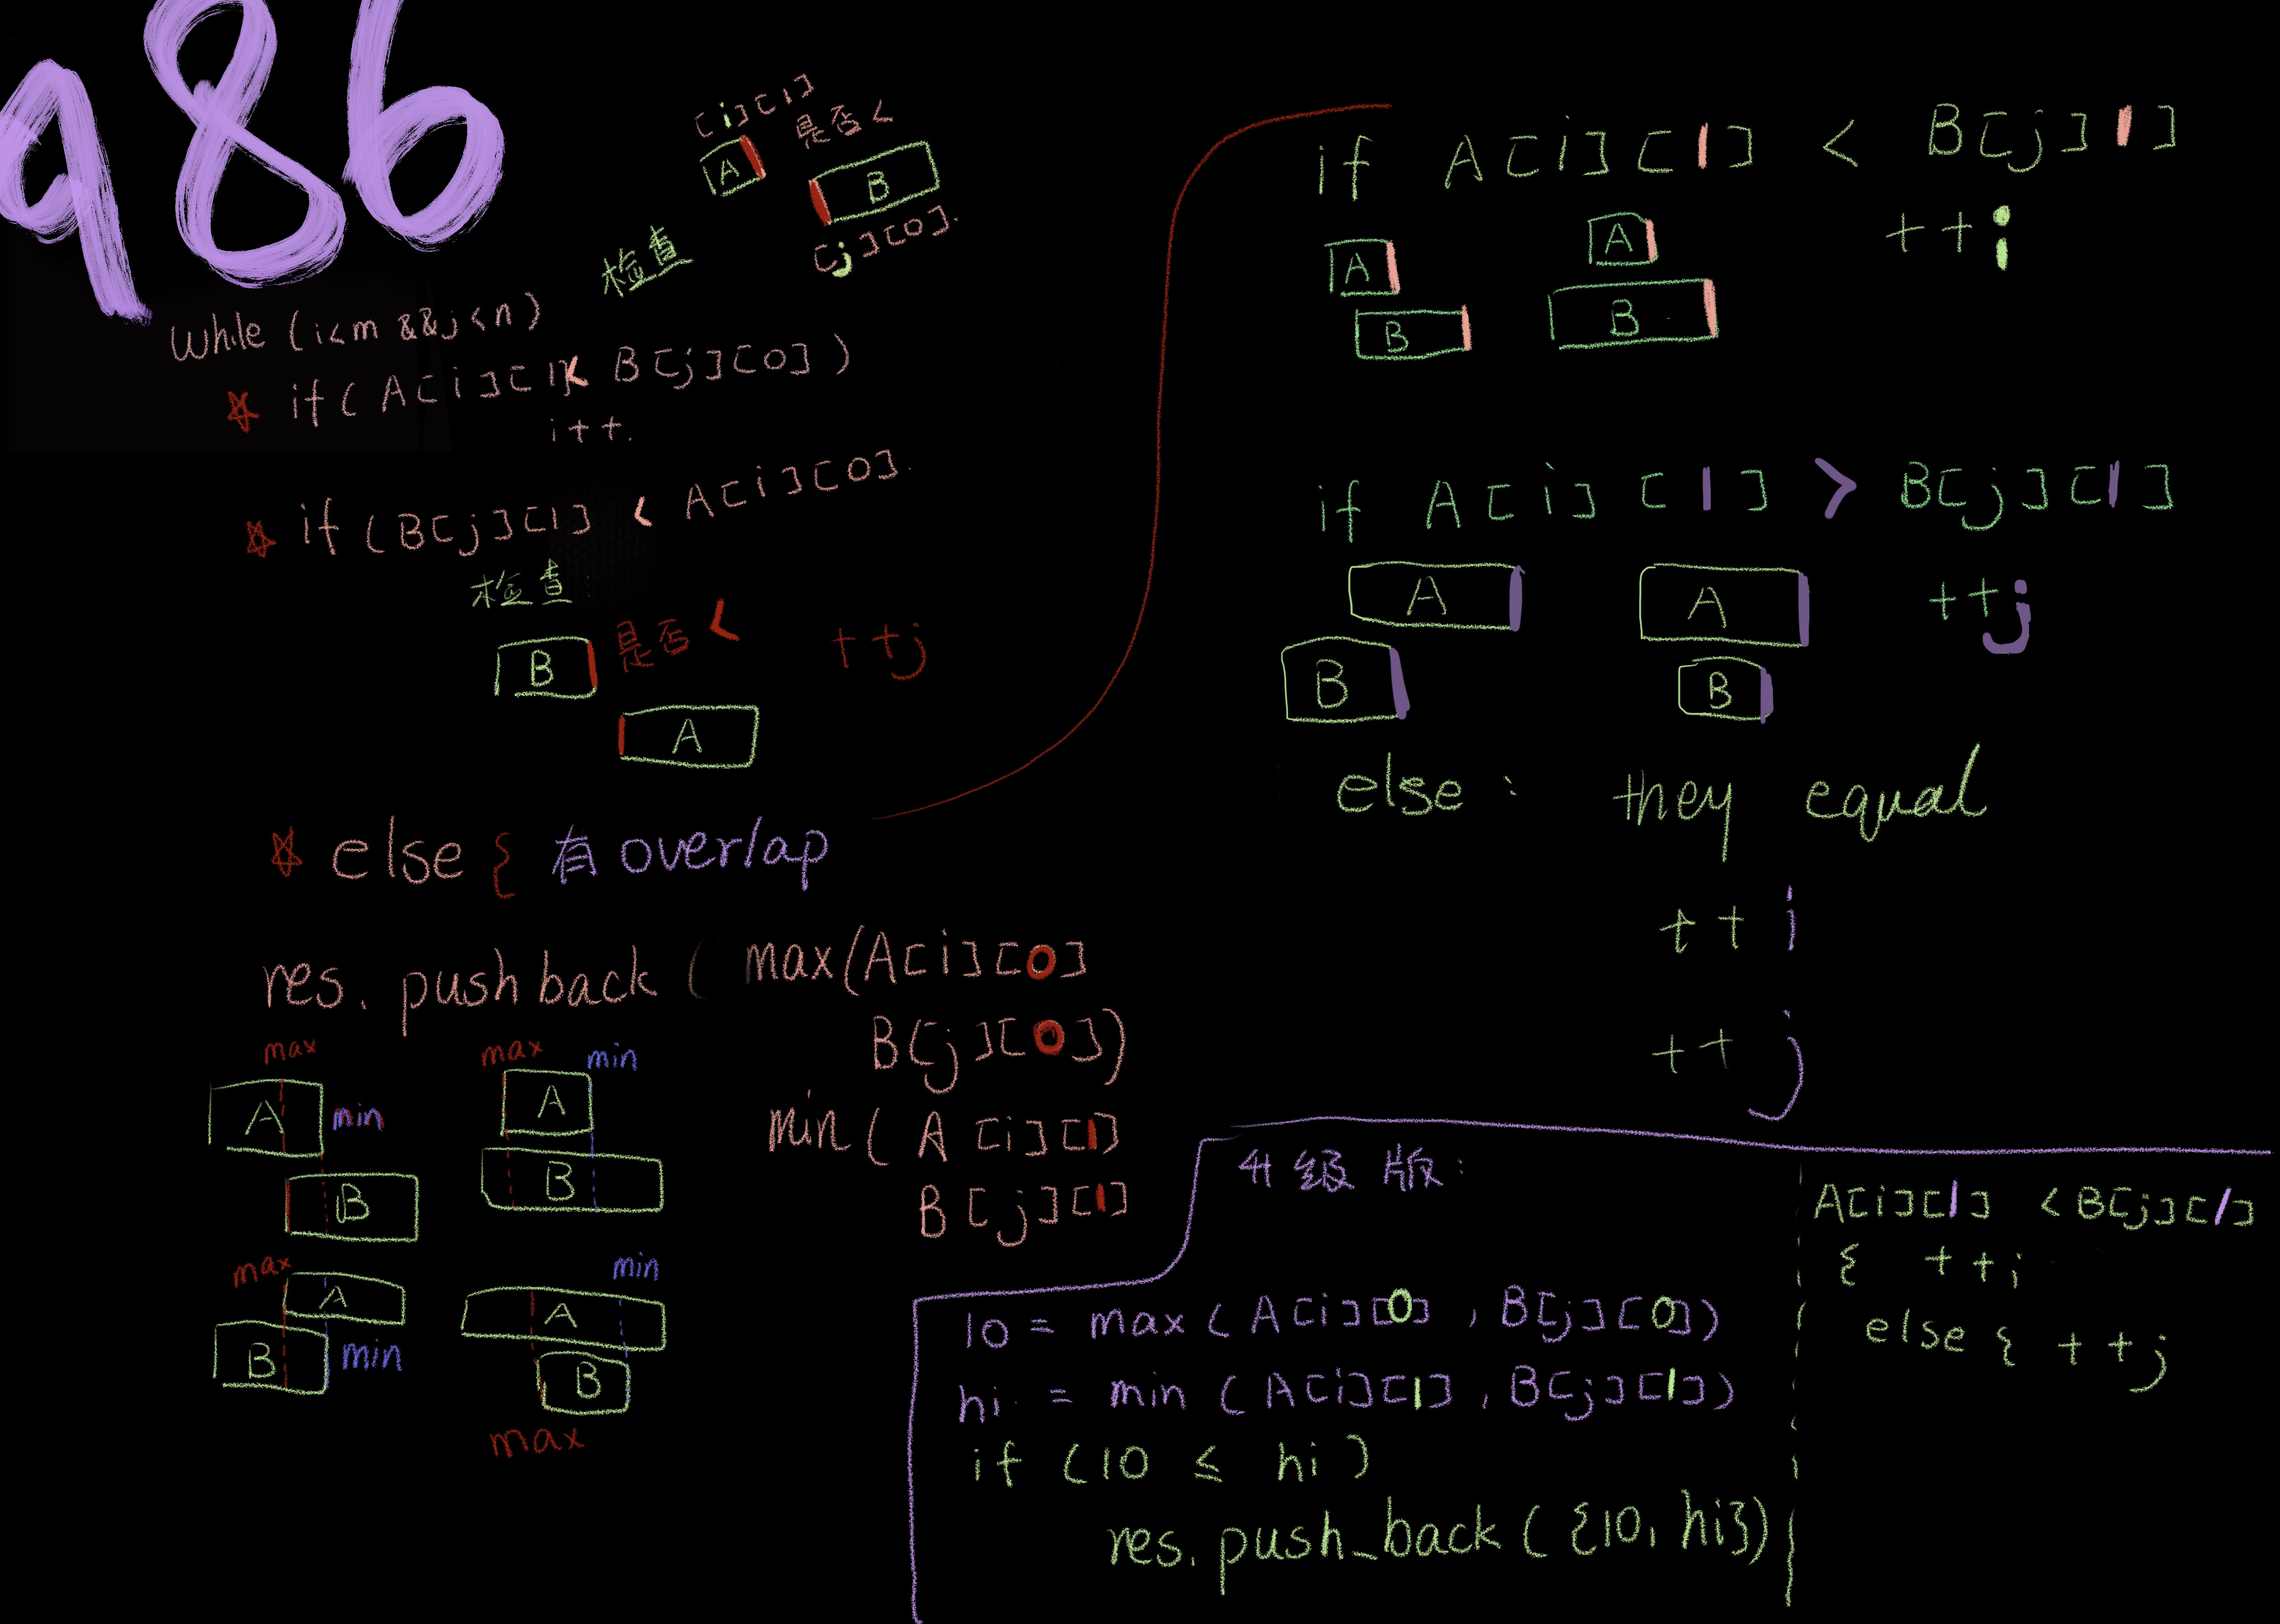 986
[i][1]
是否<
A
B
[j][0].
检查
while (i<m &&j<n)
if( A[i][1]< B[j][0] )
i++.
if (B[j][1] < A[i][0].
检查
B 是否< ++j
A
else { 有overlap
res. push back ( max(A[i][0]
B[j][0])
min( A [i][1]
B [j][1]
max
A min
B
max min
A
B
max
A
B min
min
A
B
max
if A[i][1] < B[j]1]
++i
A A
B B
if A[i] [1] > B[j][1]
++j
A A
B B
else : they equal
++i
++j
升级版:
lo = max ( A[i][0] , B[j][0])
hi = min ( A[i][1] , B[j][1])
if (lo ≤ hi )
res. push_back ( {lo, hi})
A[i][1] < B[j][1]
{ ++i
else { ++j